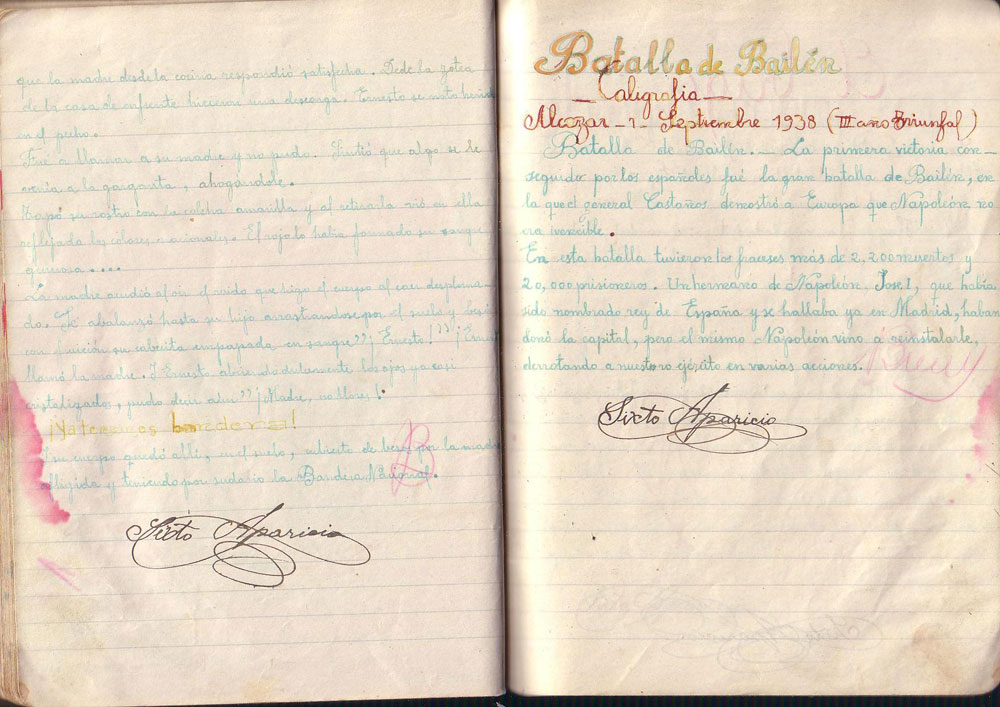 que la madre desde la cocina respondió satisfecha. Dede la zotea
de la casa de enfrente hicieron una descarga. Ernesto se noto herido
en el pecho.
Fué a llamar a su madre y no pudo. Sintió que algo se le
venia a la garganta, ahogándole.
Tapó su rostro con la colcha amarilla y al retirarla vió en ella
reflejada los colores nacionales. El rojo lo habia formado su sangre
generosa....
La madre acudió al oir el ruido que hizo el cuerpo al caer desploma-
do. Se abalanzó hasta su hijo arrastrandose por el suelo y besó
con su cabecita empapada en sangre" ¡Ernesto!"
llamó la madre. Y Ernesto abriendo los ojos ya casi
cristalizados, pudo decir aún" ¡Madre, no llores!
¡Ya tenemos bandera!
Y su cuerpo quedó allí, en el suelo, cubierto de besos por la madre
afligida y teniendo por sudario la Bandera Nacional.
B
Sixto Aparicio
Batalla de Bailén
—Caligrafia—
Alcozar - 1 - Septiembre 1938 (III año Triunfal)
Batalla de Bailén. — La primera victoria con-
seguida por los españoles fué la gran batalla de Bailén, en
la que el general Castaños demostró a Europa que Napoleón no
era invencible.
En esta batalla tuvieron los fraceses más de 2,200 muertos y
20,000 prisioneros. Un hermano de Napoleón José I, que había
sido nombrado rey de España y se hallaba ya en Madrid, haban
donó la capital, pero el mismo Napoleón vino a reinstalarle,
derrotando a nuestro ejército en varias acciones.
Sixto Aparicio